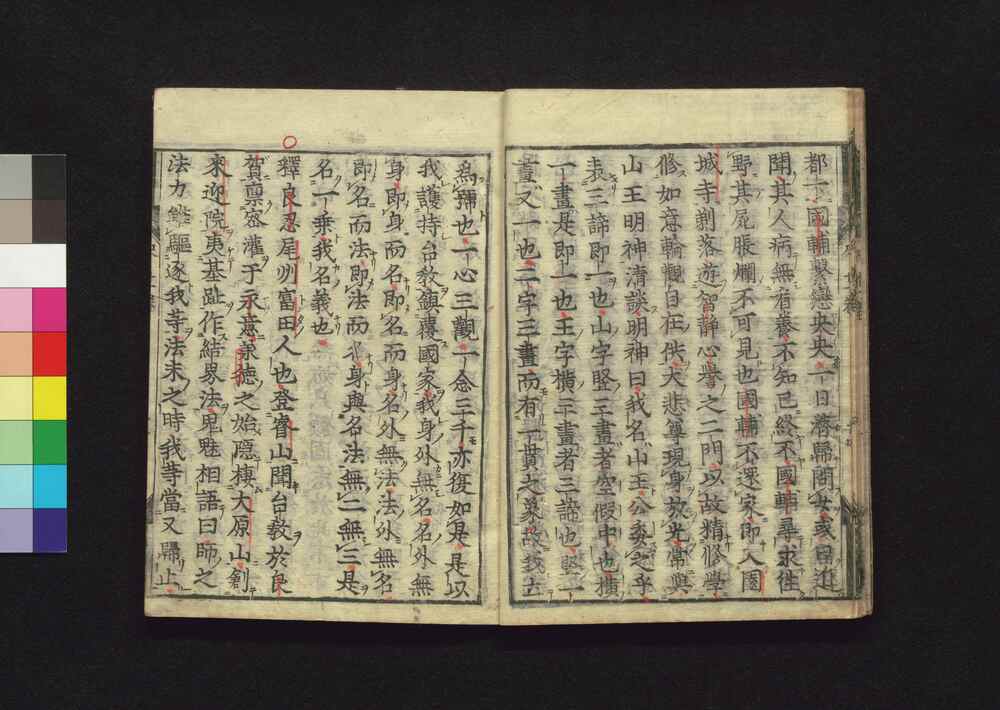 都下國輔繋戀央央一日濟歸問女或曰近
聞其人病無有養不知已終不國輔尋求徃
野其屍脹爛不可見也國輔不還家即入園
城寺剃落遊智靜心譽之二門以故精修學
修如意輪觀自在供大悲尊現身放光常與
山王明神淸談明神曰我名山王公委之乎
夫三諦即一也山字竪三畫者空假中也橫
一畫是即一也王字橫三畫者三諦也竪一
畫又一也二字三畫而有一貫之象故我立
爲號也一心三觀一念三千亦復如是是以
我護持台敎鎭覆國家我身外無名名外無
身即身而名即名而身名外無法法外無名
即名而法即法而名身與名法無二無三是
名一乘我名義也
釋良忍尾州富田人也登睿山聞台敎於良
賀稟密灌于永意嘉德之始隱棲大原山創
來迎院夷基趾作結界法鬼魅相語曰師之
法力雖驅逐我寺法末之時我寺當又歸止